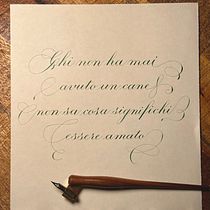 Chi non ha mai
avuto un cane
non sa cosa significhi
essere amato